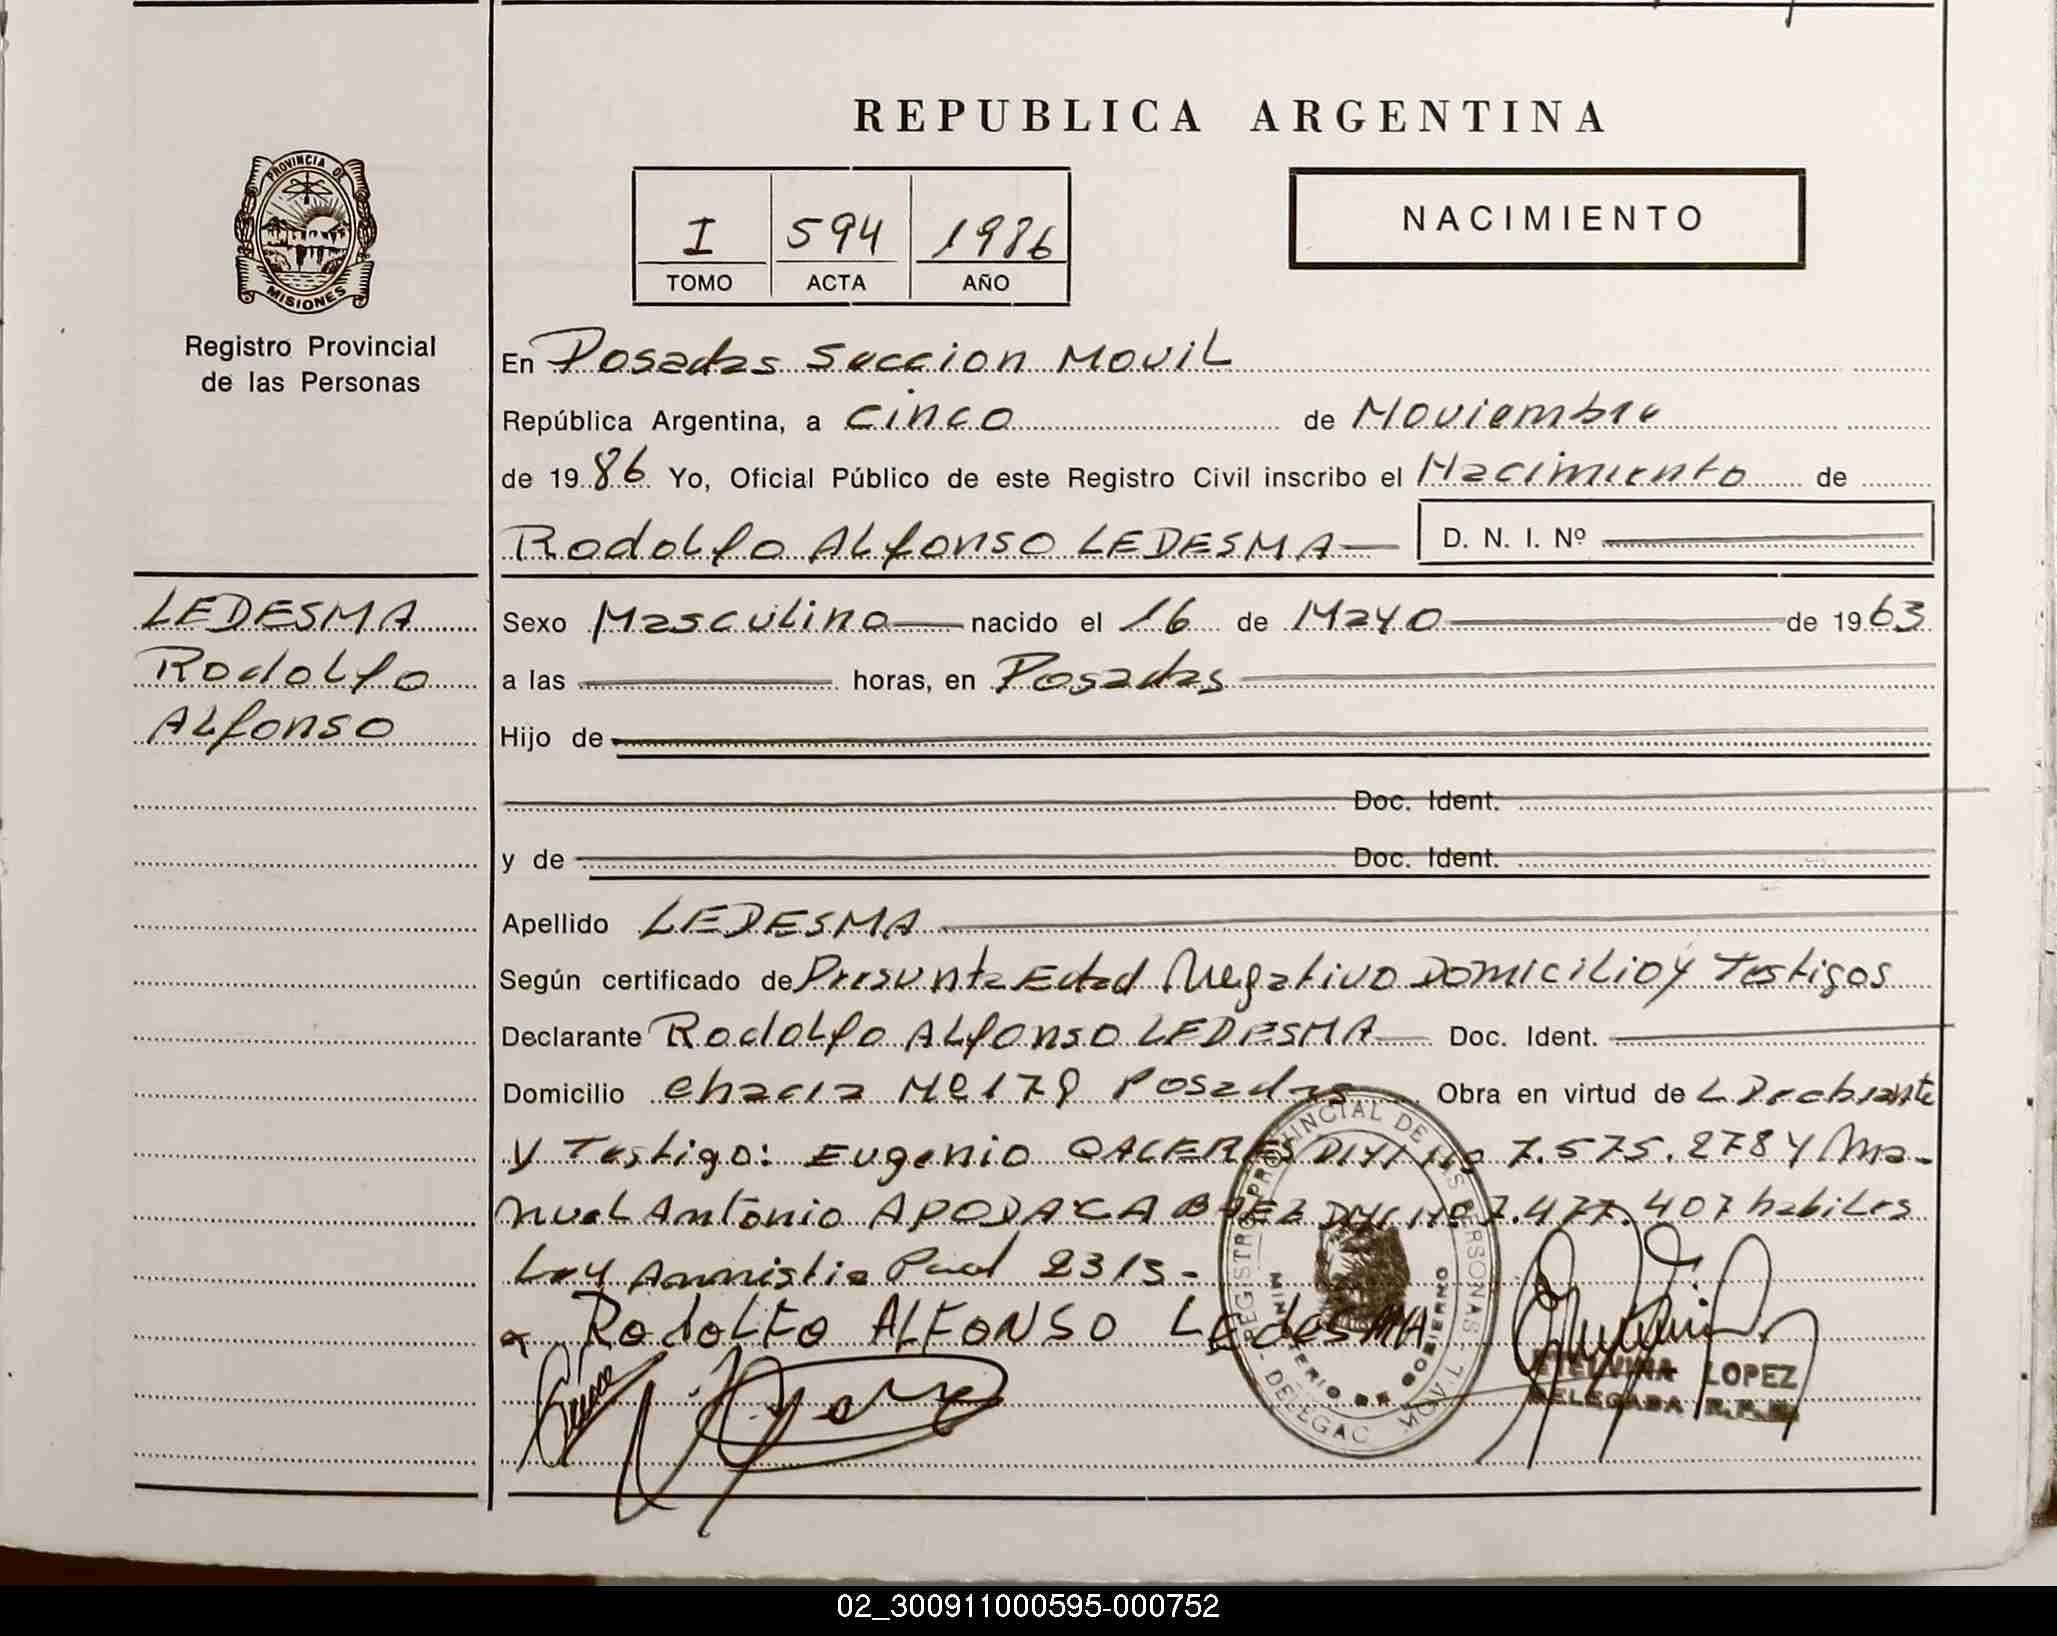 REPUBLICA ARGENTINA
PROVINCIA DE
MISIONES
Registro Provincial
de las Personas
I 594 1986
TOMO ACTA AÑO
NACIMIENTO
En Posadas Seccion Movil
República Argentina, a cinco de Noviembre
de 1986 Yo, Oficial Público de este Registro Civil inscribo el Nacimiento de
Rodolfo Alfonso LEDESMA D. N. I. Nº
LEDESMA
Rodolfo
Alfonso
Sexo Masculino nacido el 16 de Mayo de 1963
a las horas, en Posadas
Hijo de
Doc. Ident.
y de Doc. Ident.
Apellido LEDESMA
Según certificado de Presunta Edad Negativo Domicilio y Testigos
Declarante Rodolfo Alfonso LEDESMA Doc. Ident.
Domicilio chacra Nº 178 Posadas Obra en virtud de L Declarante
y Testigo: Eugenio CACERES DNI Nº 7.575.278 y Ma-
nuel Antonio APODACA BAEZ DNI Nº 7.477.407 habiles
Ley Amnistia 2313-
x Rodolfo Alfonso Ledesma
REGISTRO PROVINCIAL DE LAS PERSONAS
MINISTERIO DE GOBIERNO
- DELEGAC MOVIL
ETELVINA LOPEZ
DELEGADA R.P.P.
02_300911000595-000752